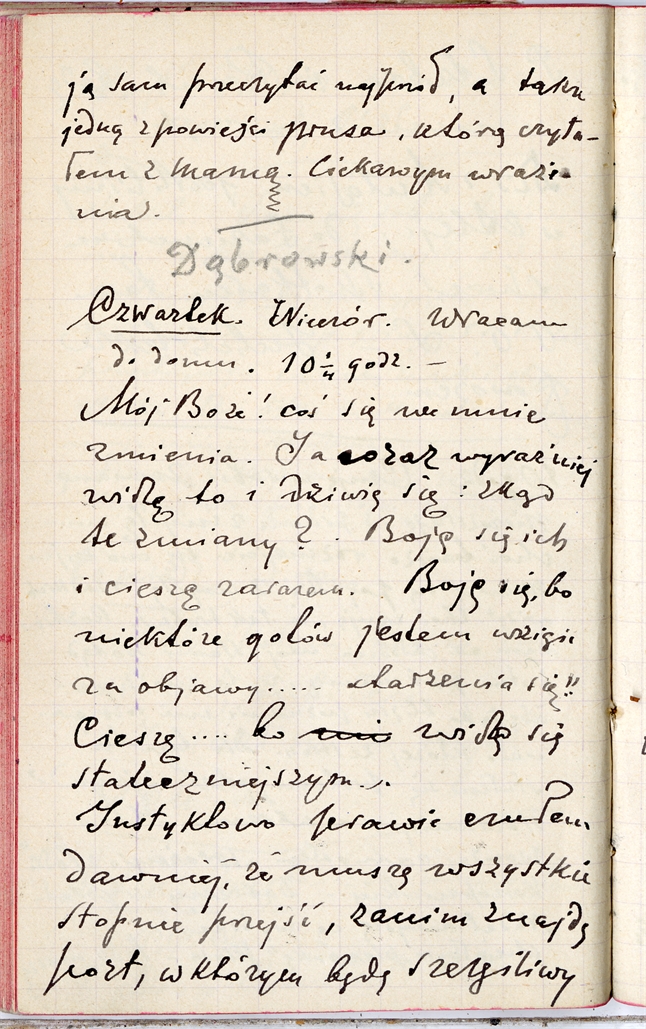 ją sam przeczytać najprzód, a także
jedną z powieści Prusa, którą czyta-
łem z Mamą. Ciekawym wraże-
nia.
Dąbrowski.
Czwartek. Wieczór. Wracam
do domu. 10 1/4 godz. —
Mój Boże! coś się we mnie
zmienia. Ja coraz wyraźniej
widzę to i dziwię się: skąd
te zmiany? Boję się ich
i cieszę zarazem. Boję się, bo
niektóre gotów jestem wziąść
za objawy..... starzenia się!!
Cieszę .... bo widzę się
stateczniejszym...
Instyktowo prawie czułem
dawniej, że muszę wszystkie
stopnie przejść, zanim znajdę
port, w którym będę szczęśliwy